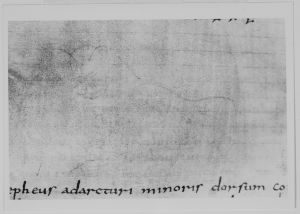 epheus adarcturi minoris dorsum co